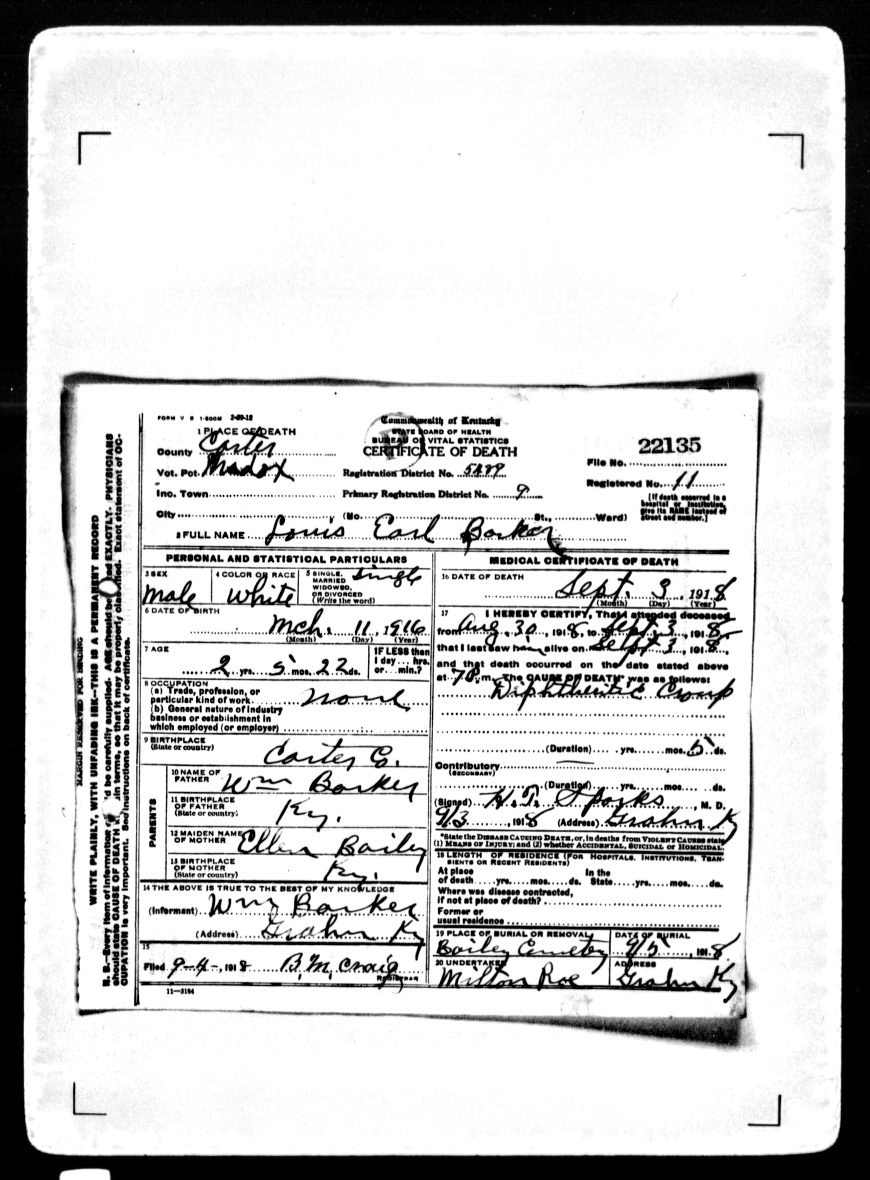 FORM V S 1-500M 2-29-18
Commonwealth of Kentucky
STATE BOARD OF HEALTH
BUREAU OF VITAL STATISTICS
CERTIFICATE OF DEATH
1 PLACE OF DEATH
County Carter
Vot. Pct. Madox
Inc. Town
City (No. St., Ward)
Registration District No.
Primary Registration District No. 9
22135
File No.
Registered No. 11
[If death occurred in a
hospital or institution,
give its NAME instead of
street and number.]
2 FULL NAME Louis Earl Barker
PERSONAL AND STATISTICAL PARTICULARS
3 SEX
Male
4 COLOR OR RACE
White
5 SINGLE,
MARRIED
WIDOWED,
OR DIVORCED
(Write the word)
Single
6 DATE OF BIRTH
Mch. 11, 1916
(Month) (Day) (Year)
7 AGE
2 yrs. 5 mos. 22 ds.
IF LESS than
1 day... hrs.
or... min.?
8 OCCUPATION
(a) Trade, profession, or
particular kind of work None
(b) General nature of industry
business or establishment in
which employed (or employer)
9 BIRTHPLACE
(State or country)
Carter Co.
PARENTS
10 NAME OF
FATHER
Wm Barker
11 BIRTHPLACE
OF FATHER
(State or country)
Ky.
12 MAIDEN NAME
OF MOTHER
Ellen Bailey
13 BIRTHPLACE
OF MOTHER
(State or country)
Ky.
14 THE ABOVE IS TRUE TO THE BEST OF MY KNOWLEDGE
(Informant) Wm Barker
(Address) Grahn Ky
15
Filed 9-4-, 1918 B. M. Craig
REGISTRAR
11-3184
MEDICAL CERTIFICATE OF DEATH
16 DATE OF DEATH
Sept. 3, 1918
(Month) (Day) (Year)
17 I HEREBY CERTIFY, That I attended deceased
from Aug 30, 1918, to Sept. 3, 1918,
that I last saw him alive on Sept 3, 1918,
and that death occurred on the date stated above
at 7 P. m. The CAUSE OF DEATH* was as follows:
Diphtheritic Croup
(Duration) yrs. mos. 5 ds.
Contributory
(SECONDARY)
(Duration) yrs. mos. ds.
(Signed) H. T. Sparks, M. D.
9/3, 1918 (Address) Grahn Ky
*State the DISEASE CAUSING DEATH, or, in deaths from VIOLENT CAUSES state
(1) MEANS OF INJURY; and (2) whether ACCIDENTAL, SUICIDAL or HOMICIDAL.
18 LENGTH OF RESIDENCE (FOR HOSPITALS, INSTITUTIONS, TRAN-
SIENTS OR RECENT RESIDENTS)
At place In the
of death yrs. mos. ds. State yrs. mos. ds.
Where was disease contracted,
if not at place of death?
Former or
usual residence
19 PLACE OF BURIAL OR REMOVAL
Bailey Cemetery
DATE OF BURIAL
9/5, 1918
20 UNDERTAKER
Milton Roe
ADDRESS
Grahn Ky
MARGIN RESERVED FOR BINDING
WRITE PLAINLY, WITH UNFADING INK—THIS IS A PERMANENT RECORD
N. B.—Every item of information be carefully supplied. AGE should be EXACTLY. PHYSICIANS
should state CAUSE OF DEATH in terms, so that it may be properly classified. Exact statement of OC-
CUPATION is very important. See instructions on back of certificate.